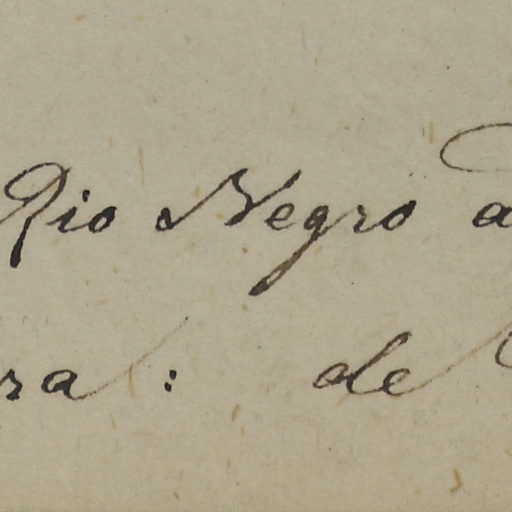 Rio Negro a
ra : de